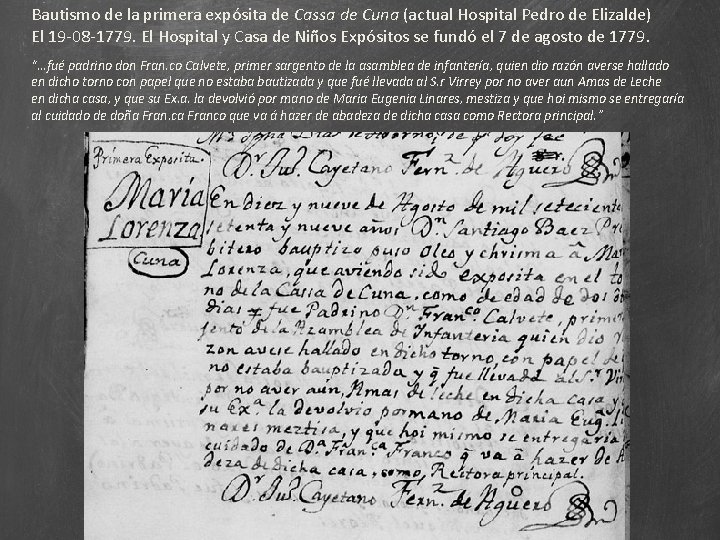 Bautismo de la primera expósita de Cassa de Cuna (actual Hospital Pedro de Elizalde)
El 19-08-1779. El Hospital y Casa de Niños Expósitos se fundó el 7 de agosto de 1779.
“...fué padrino don Fran.co Calvete, primer sargento de la asamblea de infantería, quien dio razón averse hallado
en dicho torno con papel que no estaba bautizada y que fué llevada al S.r Virrey por no aver aun Amas de Leche
en dicha casa, y que su Ex.a. la devolvió por mano de Maria Eugenia Linares, mestiza y que hoi mismo se entregaría
al cuidado de doña Fran.ca Franco que va á hazer de abadeza de dicha casa como Rectora principal.”
Dr. Juo. Cayetano Fernz. de Aguero
Primera Exposita.
Maria
Lorenza
Cuna
En diez y nueve de Agosto de mil setecient
setenta y nueve años Dn. Santiago Baez Pre
bitero bauptizo puso Oleo y chrisma â Ma
Lorenza, que aviendo sido exposita en el to
no de la Cassa de Cuna, como de edad de dos
dias fue Padrino Dn. Franco. Calvete, prime
sento de la Azamblea de Infanteria quien dio
zon averse hallado en dicho torno, con papel de
no estaba bauptizada y q fue llevada al Sr. Vir
por no aver aún, Amas de leche en dicha casa y
su Exa. la devolvio por mano de Maria Eug
nares mestisa, y que hoi mismo se entregaria
cuidado de Da. Franca. Franco q va â hazer de A
deza de dicha casa, como, Rectora principal.
Dr. Juo. Cayetano Fernz. de Aguero